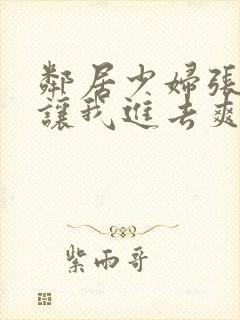 鄰居少婦張
讓我進去爽
紫雨哥